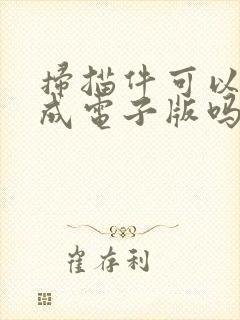 掃描件可以
成電子版吗
崔存利